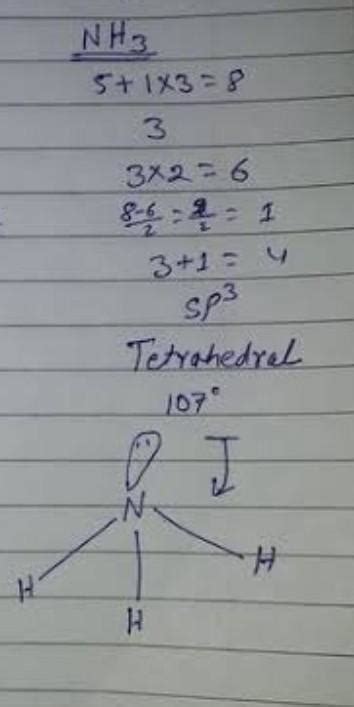 NH3
5+1×3=8
3
3×2=6
8-6/2 = 2/2 = 1
3+1= 4
SP³
Tetrahedral
107°
N
H
H
H